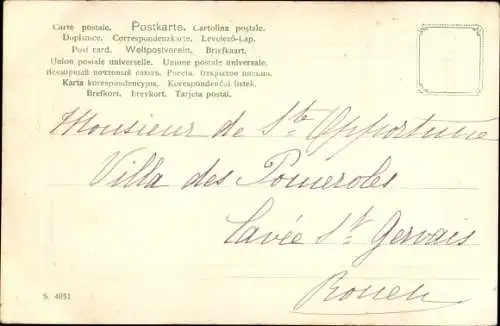 Carte postale. Postkarte. Cartolina postale.
Dopisnice. Correspondenzkarte. Levelező-Lap.
Post card. Weltpostverein. Briefkaart.
Union postale universelle. Unione postale universale.
Всемирный почтовый союзъ. Россія. Открытое письмо.
Karta korespondencyjna. Korespondenční listek.
Brefkort. brevkort. Tarjeta postal.
Monsieur de Ste Opportune
Villa des Pomeroles
Cavée St Gervais
Rouen
S. 4051